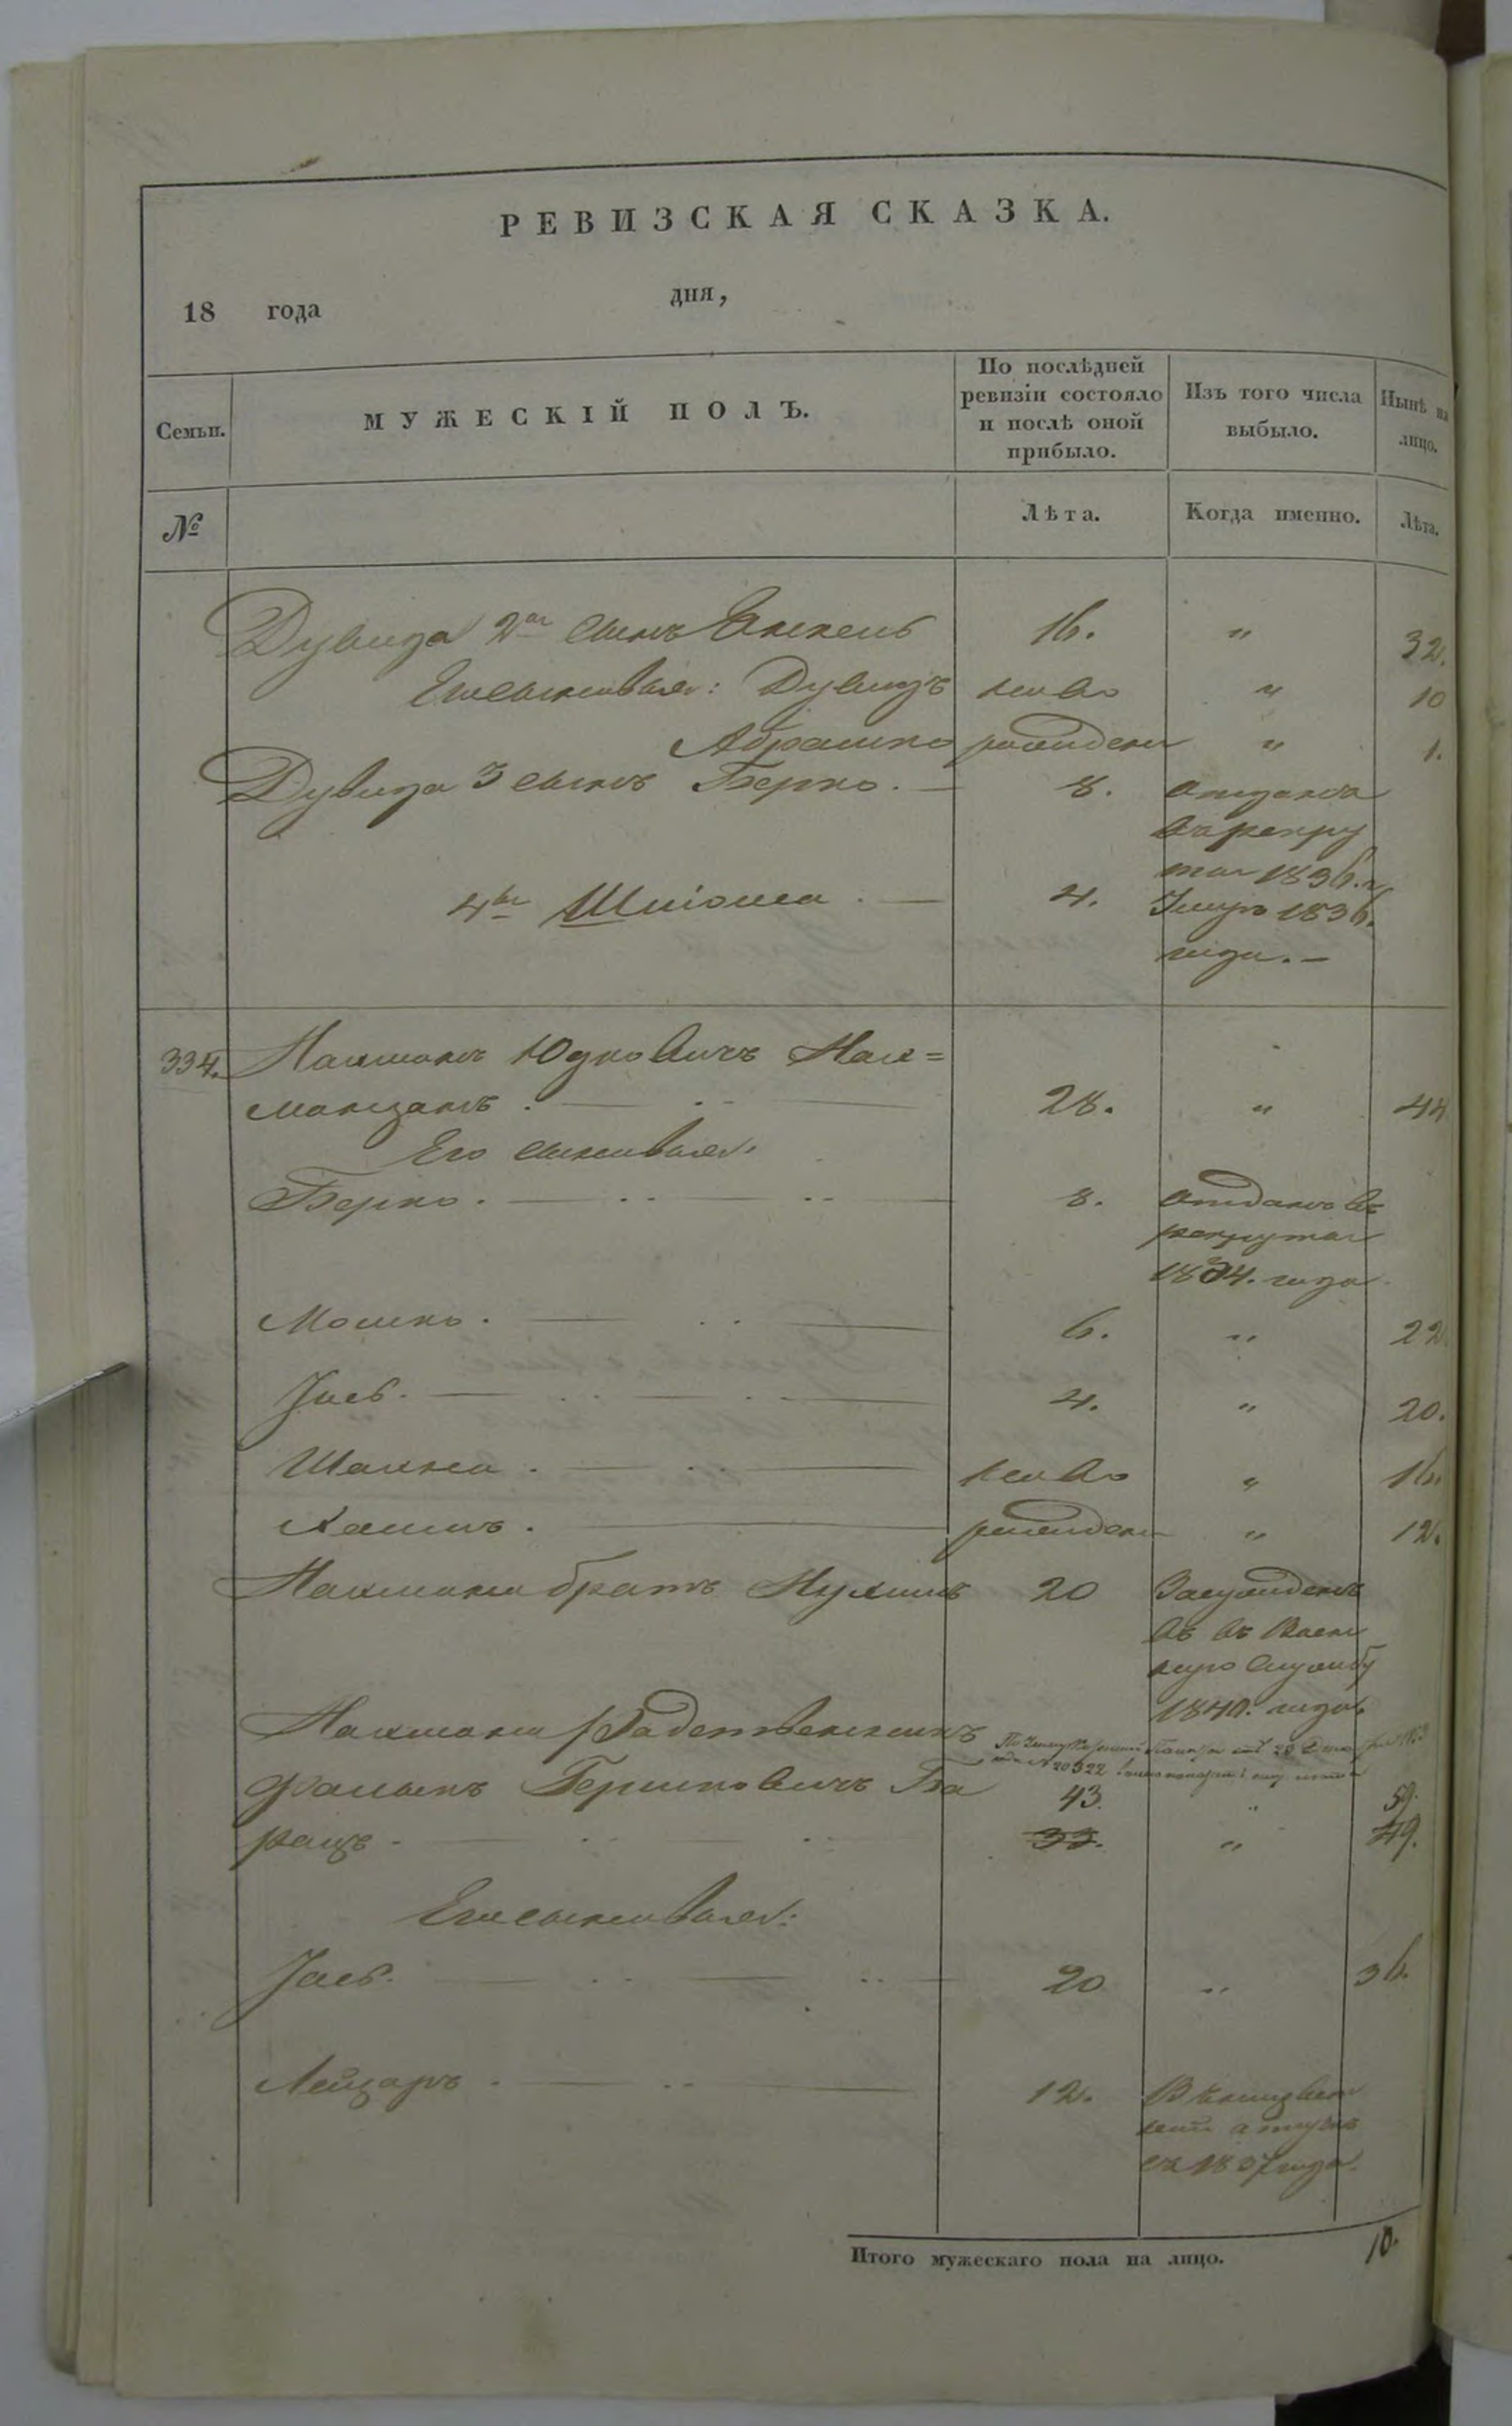 РЕВИЗСКАЯ СКАЗКА.
18 года дня,
Семьи. МУЖЕСКІЙ ПОЛЪ. По послѣдней ревизіи состояло и послѣ оной прибыло. Изъ того числа выбыло. Нынѣ на лицо.
№ Лѣта. Когда именно. Лѣта.
Дувида 2й сынъ Янкель 16. " 32.
Его сыновья: Дувидъ ново " 10
Абрашко рожденн " 1.
Дувида 3 сынъ Берко. — 8. отданъ
въ рекру
ты 1836. г
4й Шліома. — 4. Умеръ 1836.
года. —
334. Нахманъ Юдковичъ Нах=
манзанъ. — 28. " 44
Его сыновья:
Берко. — 8. отданъ въ
рекруты
1834. года
Мошко. — 6. " 22.
Іось. — 4. " 20.
Шахна. — ново " 16.
Хаимъ. — рожденн " 12.
Нахмана братъ Нухимъ 20 Засужденъ
въ въ Воен
ную Службу
1840. года
Нахмана Родственникъ
Фалыкъ Берковичъ Ба 43. " 59.
рацъ. — 33. " 49.
Его сыновья:
Іось. — 20 " 36.
Лейзаръ. — 12. В неизвест
ной отлучк
съ 1837 года.
Итого мужескаго пола на лицо. 10.